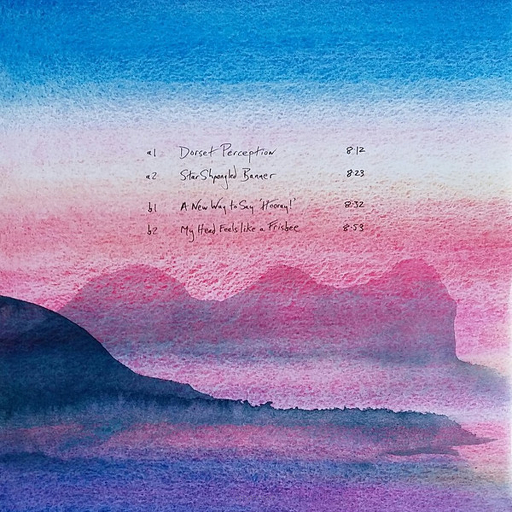 a1 Dorset Perception 8:12
a2 Star Shpongled Banner 8:23
b1 A New Way to Say 'Hooray!' 8:32
b2 My Head Feels like a Frisbee 8:53